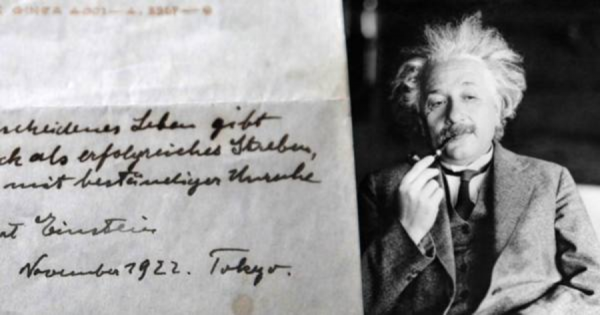 GINZA
scheidenes Leben gibt
ck als erfolgreiches Streben,
mit beständiger Unruhe
rt Einstein
November 1922. Tokyo.